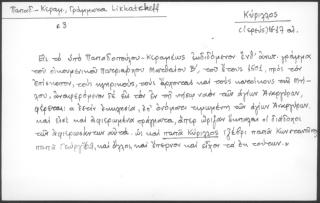 Παπαδ-Κεραμ, Γράμματα Likhatcheff
Κύριλλος
σ 3
(ιερεύς) 16-17 αι.
Εἰς τὸ ὑπὸ Παπαδοπούλου-Κεραμέως ἐκδιδόμενον ἐνθ' ἀνωτ. γράμμα
τοῦ οἰκουμενικοῦ Πατριάρχου Ματθαίου Β', τοῦ ἔτους 1601, πρὸς τὸν
ἐπίσκοπον, τοὺς κληρικούς, τοὺς ἄρχοντας καὶ τοὺς κατοίκους τῆς
ἀναφερόμενον δὲ εἰς τὸν ἐν τῇ νήσῳ ναὸν τῶν ἁγίων Ἀναργύρων,
φέρεται: ἐκκλησία, ἐπ' ὀνόματι τιμωμένη τῶν ἁγίων Ἀναργύρων.
καὶ ἔχει καὶ ἀφιερωμένα πράγματα, ἅπερ οἱ διάδοχοι
τῶν ἀφιερωσάντων αὐτά. ὡς καὶ παπᾶ Κύριλλος παπᾶ Κωνσταντῖνος
παπᾶ καὶ ἄλλοι, καὶ καὶ εἶχον τὰ ἐκ τούτων..»